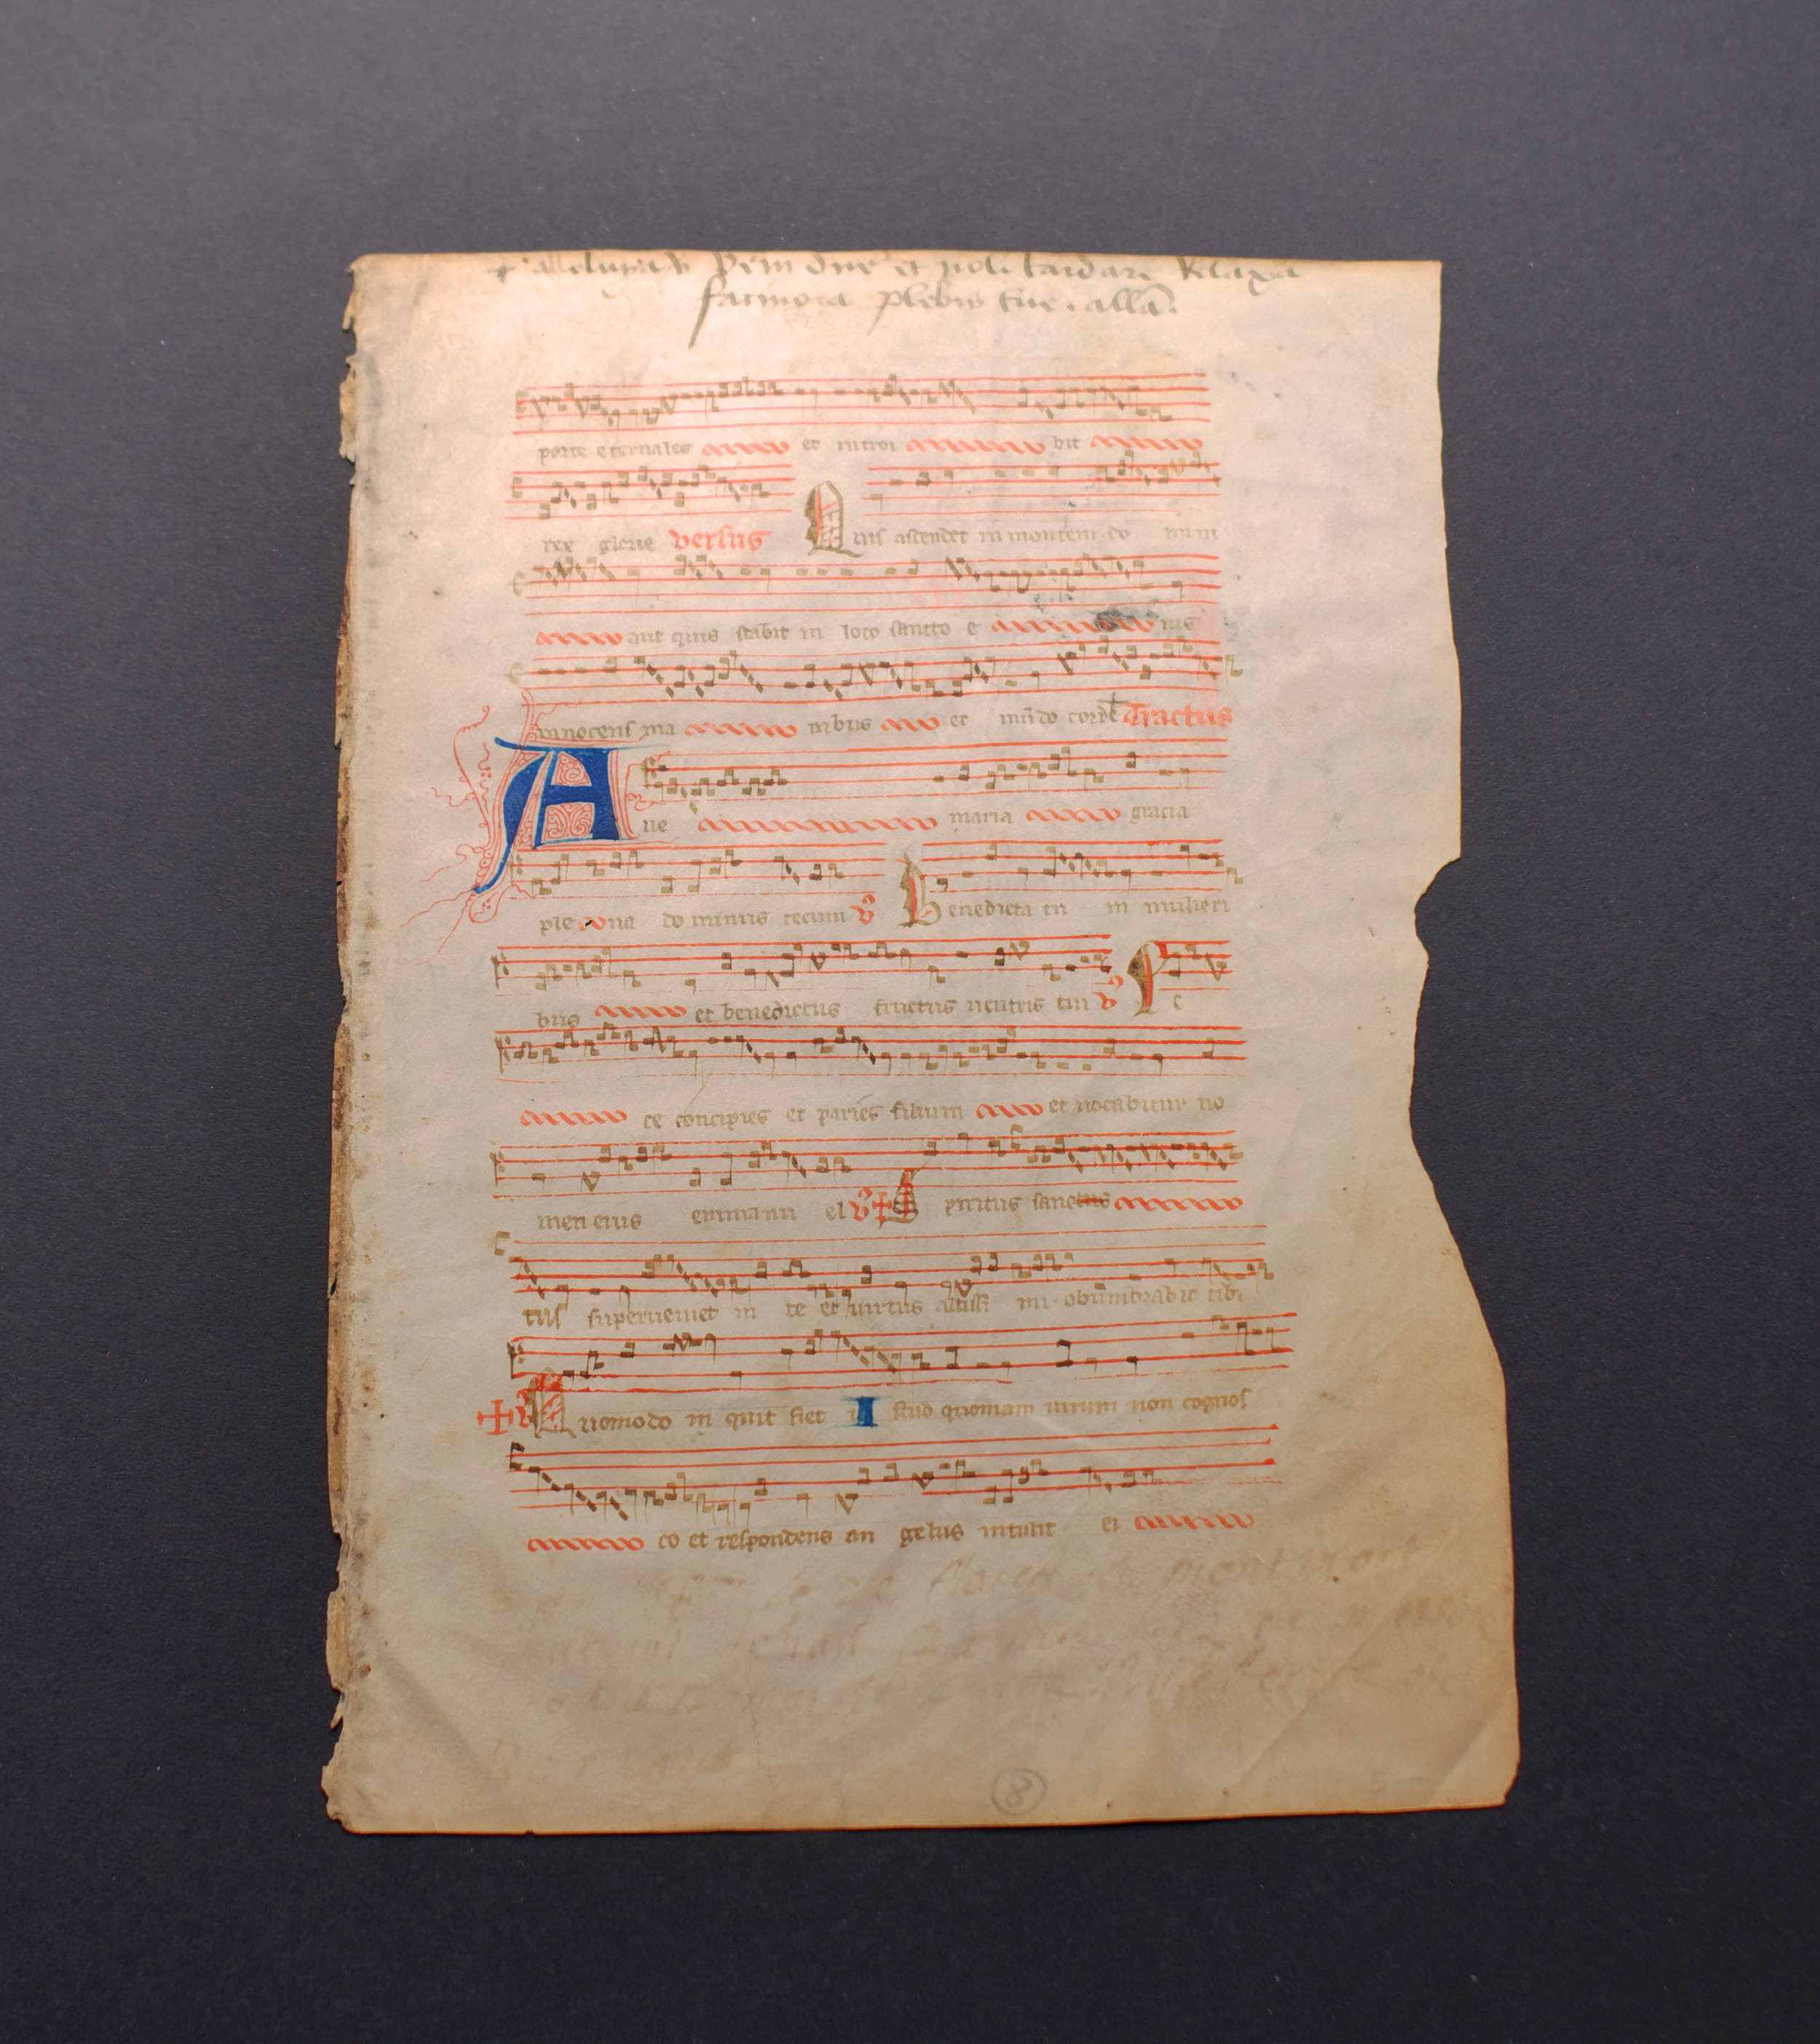 alleluya ℣ Veni dne et noli tardare Relaxa
facinora plebis tue . allā.
porte eternales et introi bit
rex glorie versus Quis ascendet in montem do mini
aut quis stabit in loco sancto e ius
innocens ma nibus et mūdo corde Tractus
Aue maria gracia
ple na do minus tecum ℣ Benedicta tu in mulieri
bus et benedictus fructus uentris tui ℣ E
ce concipies et paries filium et uocabitur no
men eius emmanu el ℣ Spiritus sanctus
tus superueniet in te et uirtus altissi mi obumbrabit tibi
℣ Quomodo in quit fiet istud quoniam uirum non cognos
co et respondens an gelus intulit ei
8